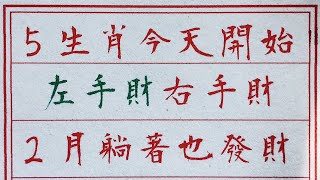 5生肖今天開始
左手財右手財
2月躺著也發財